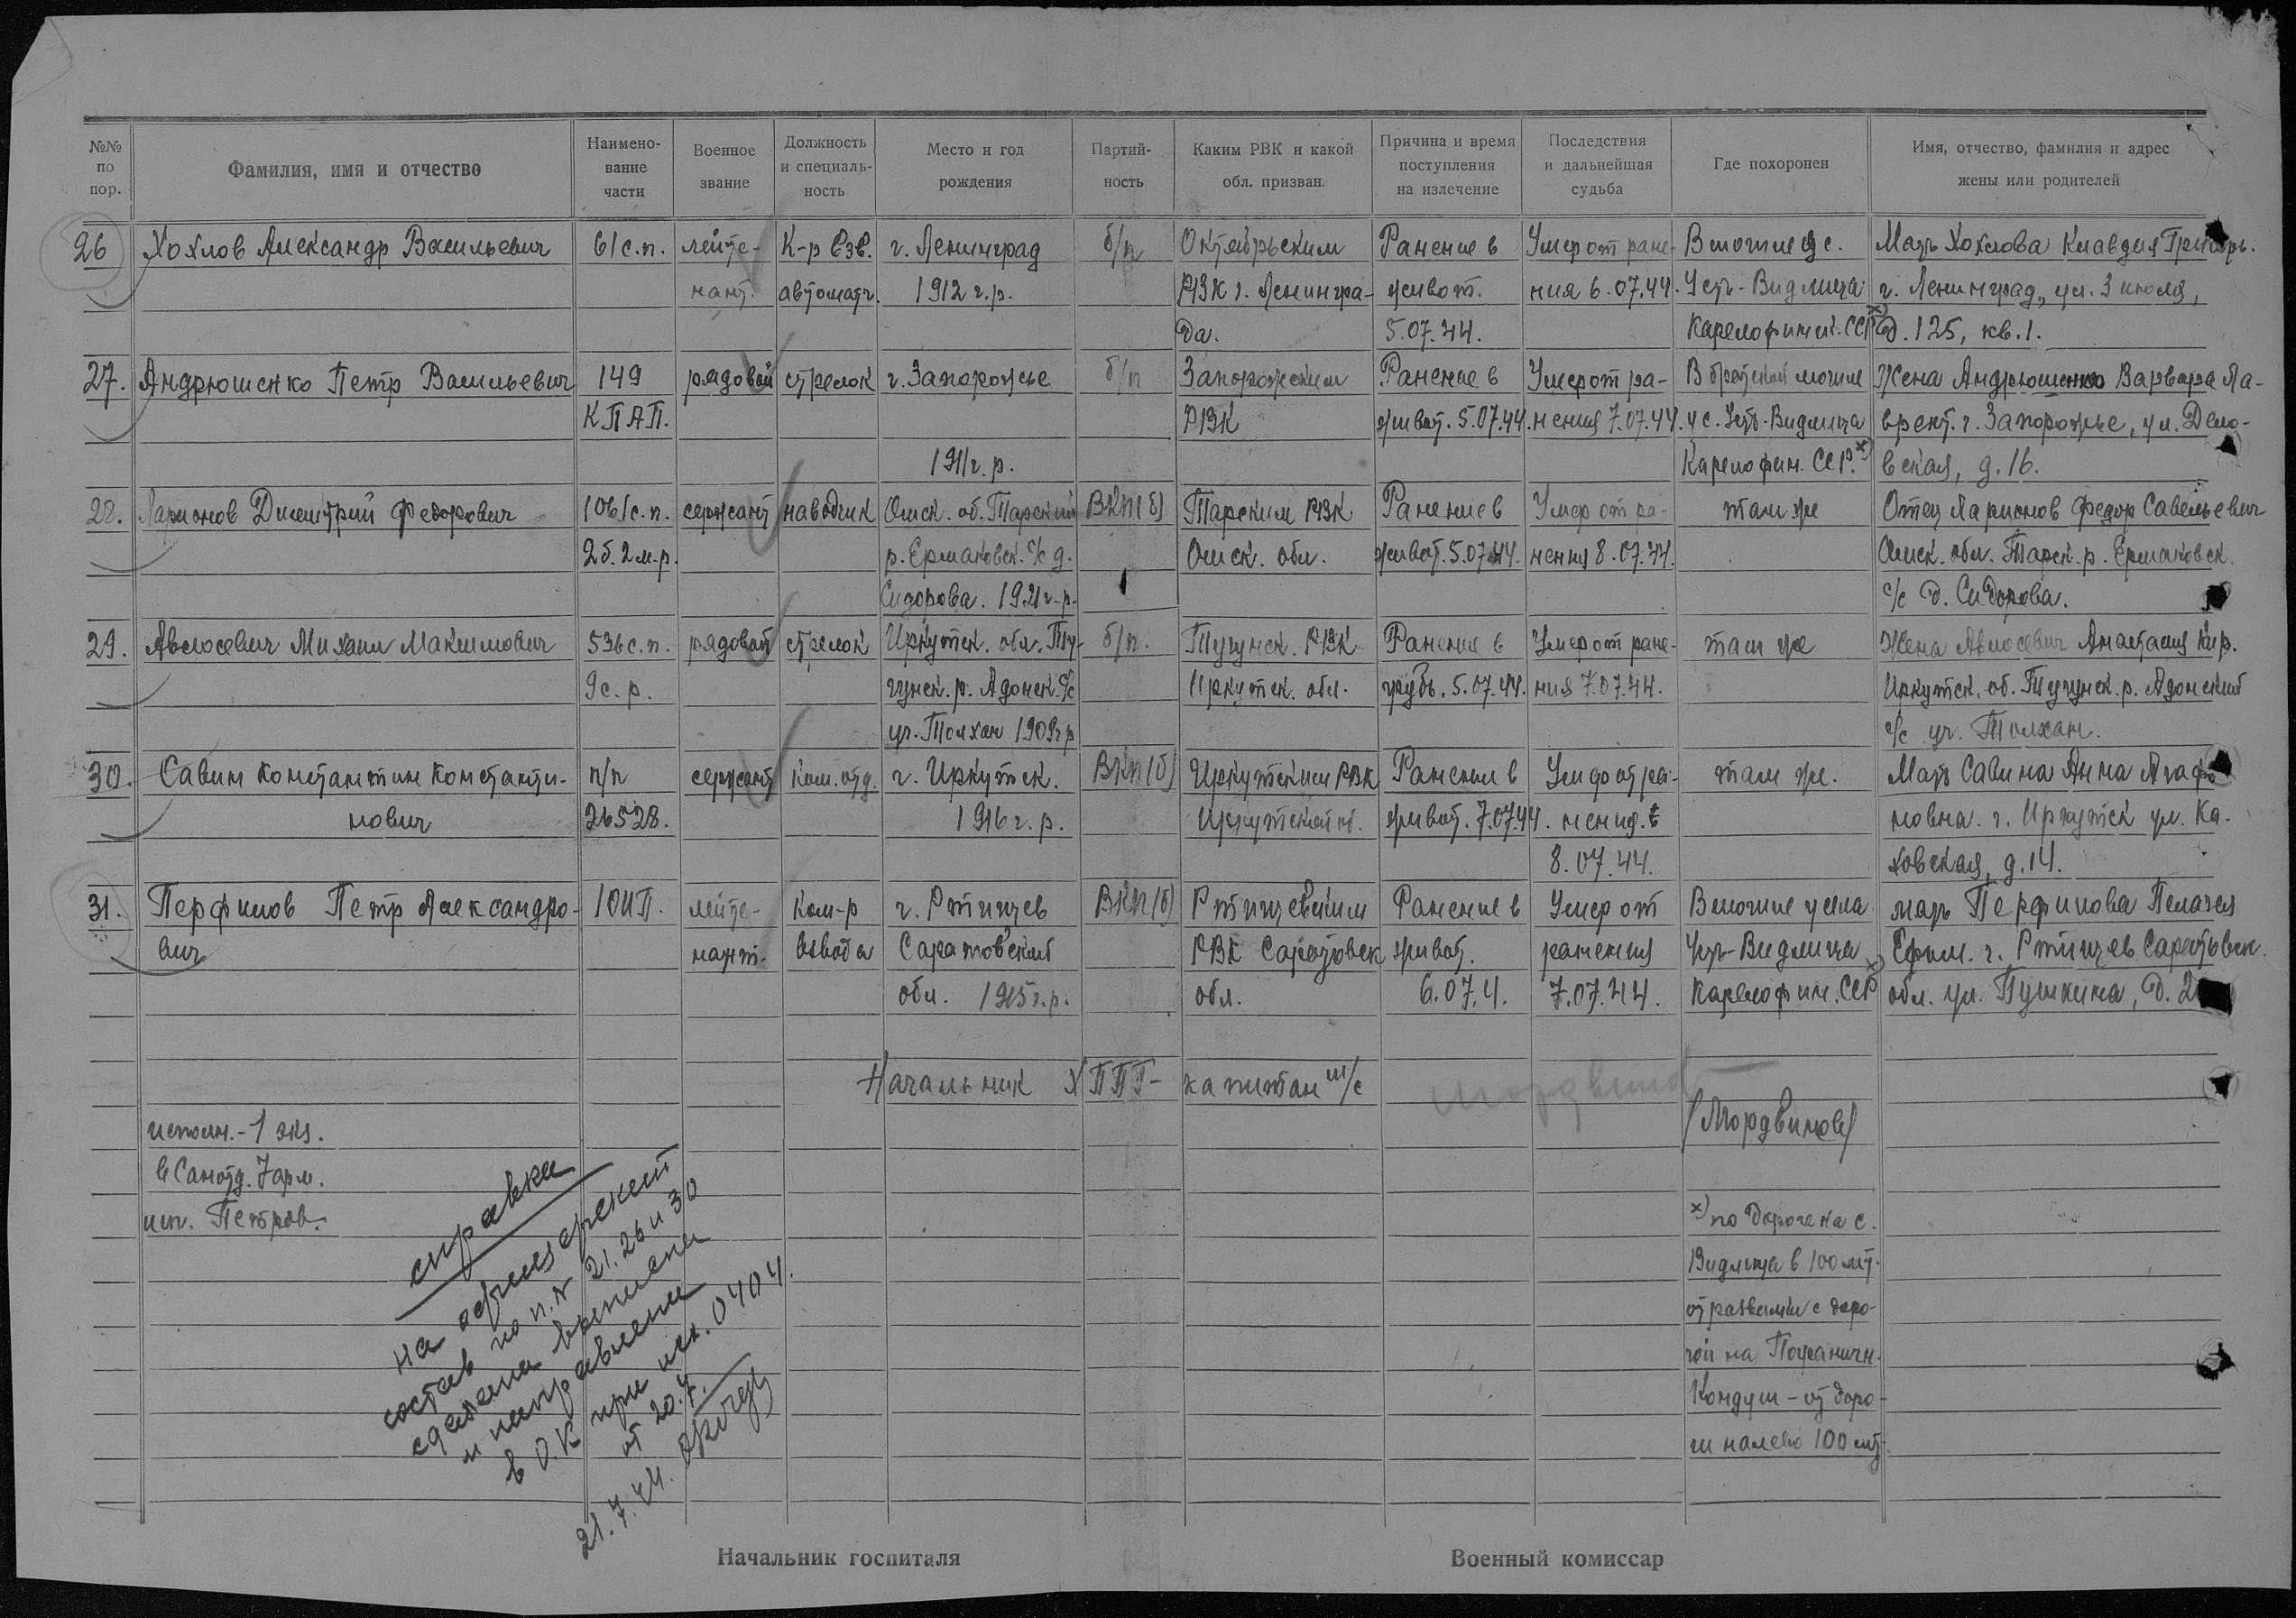 №№ по пор.
Фамилия, имя и отчество
Наимено-вание части
Военное звание
Должность и специаль-ность
Место и год рождения
Партий-ность
Каким РВК и какой обл. призван.
Причина и время поступления на излечение
Последствия и дальнейшая судьба
Где похоронен
Имя, отчество, фамилия и адрес жены или родителей
26 Хохлов Александр Васильевич 61 с.п. лейте- К-р взв. г. Ленинград б/п Октябрьским Ранение в Умер от ране- В могиле у с. Мать Хохлова Клавдия Григорь.
нант. автоматч. 1912 г.р. РВК г. Ленингра- живот. ния 6.07.44. Усть-Видлица г. Ленинград, ул. 3 июля,
да. 5.07.44. Карелофинск. ССР х) д. 125, кв. 1.
27. Андрюшенко Петр Васильевич 149 рядовой стрелок г. Запорожье б/п Запорожским Ранение в Умер от ра- В братской могиле Жена Андрюшенко Варвара Ла-
КПАП. РВК живот. 5.07.44. нения 7.07.44. у с. Усть-Видлица врент. г. Запорожье, ул.
1911 г.р. Карелофин. ССР. х) вская, д. 16.
28. Ларионов Дмитрий Федорович 1061 с.п. сержант наводчик Омск. об. Тарский ВКП(б) Тарским РВК Ранение в Умер от ра- там же Отец Ларионов Федор Савельевич
2 б. 2 м.р. р. Ермаковск. с/с д. Омск. обл. живот. 5.07.44. нения 8.07.44. Омск. обл. Тарск. р. Ермаковск.
Сидорова. 1921 г.р. с/с д. Сидорова.
29. Авлосевич Михаил Максимович 536 с.п. рядовой стрелок Иркутск. обл. Ту- б/п. Тулунск. РВК Ранение в Умер от ране- там же Жена Авлосевич Анастасия Кир.
9 с.р. лунск. р. Адонск. с/с Иркутск. обл. грудь. 5.07.44. ния 7.07.44. Иркутск. об. Тулунск. р. Адонский
уч. Толхан 1909 г р с/с уч. Толхан.
30. Савин Константин Константи- п/п сержант ком. отд. г. Иркутск. ВКП(б) Иркутским РВК Ранение в Умер от ра- там же. Мать Савина Анна
нович 26528. 1916 г.р. Иркутской об. живот. 7.07.44. нения. новна. г. Иркутск ул. Ка-
8.07.44. ховская, д. 14.
31. Перфилов Петр Александро- 10ИП. лейте- ком-р г. Ртищев ВКП(б) Ртищевским Ранение в Умер от В могиле у села мать Перфилова Пелагея
вич нант. взвода Саратовский РВК Саратовск живот. ранения Усть-Видлица Ефим. г. Ртищев Саратовск.
обл. 1915 г.р. обл. 6.07.4. 7.07.44. Карелофин. ССР х) обл. ул. Пушкина, д. 2
Начальник ХППГ - капитан м/с
Мордвинов
/Мордвинов/
исполн. - 1 экз.
в Санотд. 7 арм.
исп. Петров.
справка
на офицерский
состав по п. № 21. 26 и 30
сделаны выписки
и направлены
в О.К при исх. 0404.
от 20.7.
21.7.44.
х) по дороге на с.
Видлица в 100 мт.
от развилки с доро-
гой на Пограничн.
Кондуш - от доро-
ги налево 100 мт.
Начальник госпиталя
Военный комиссар